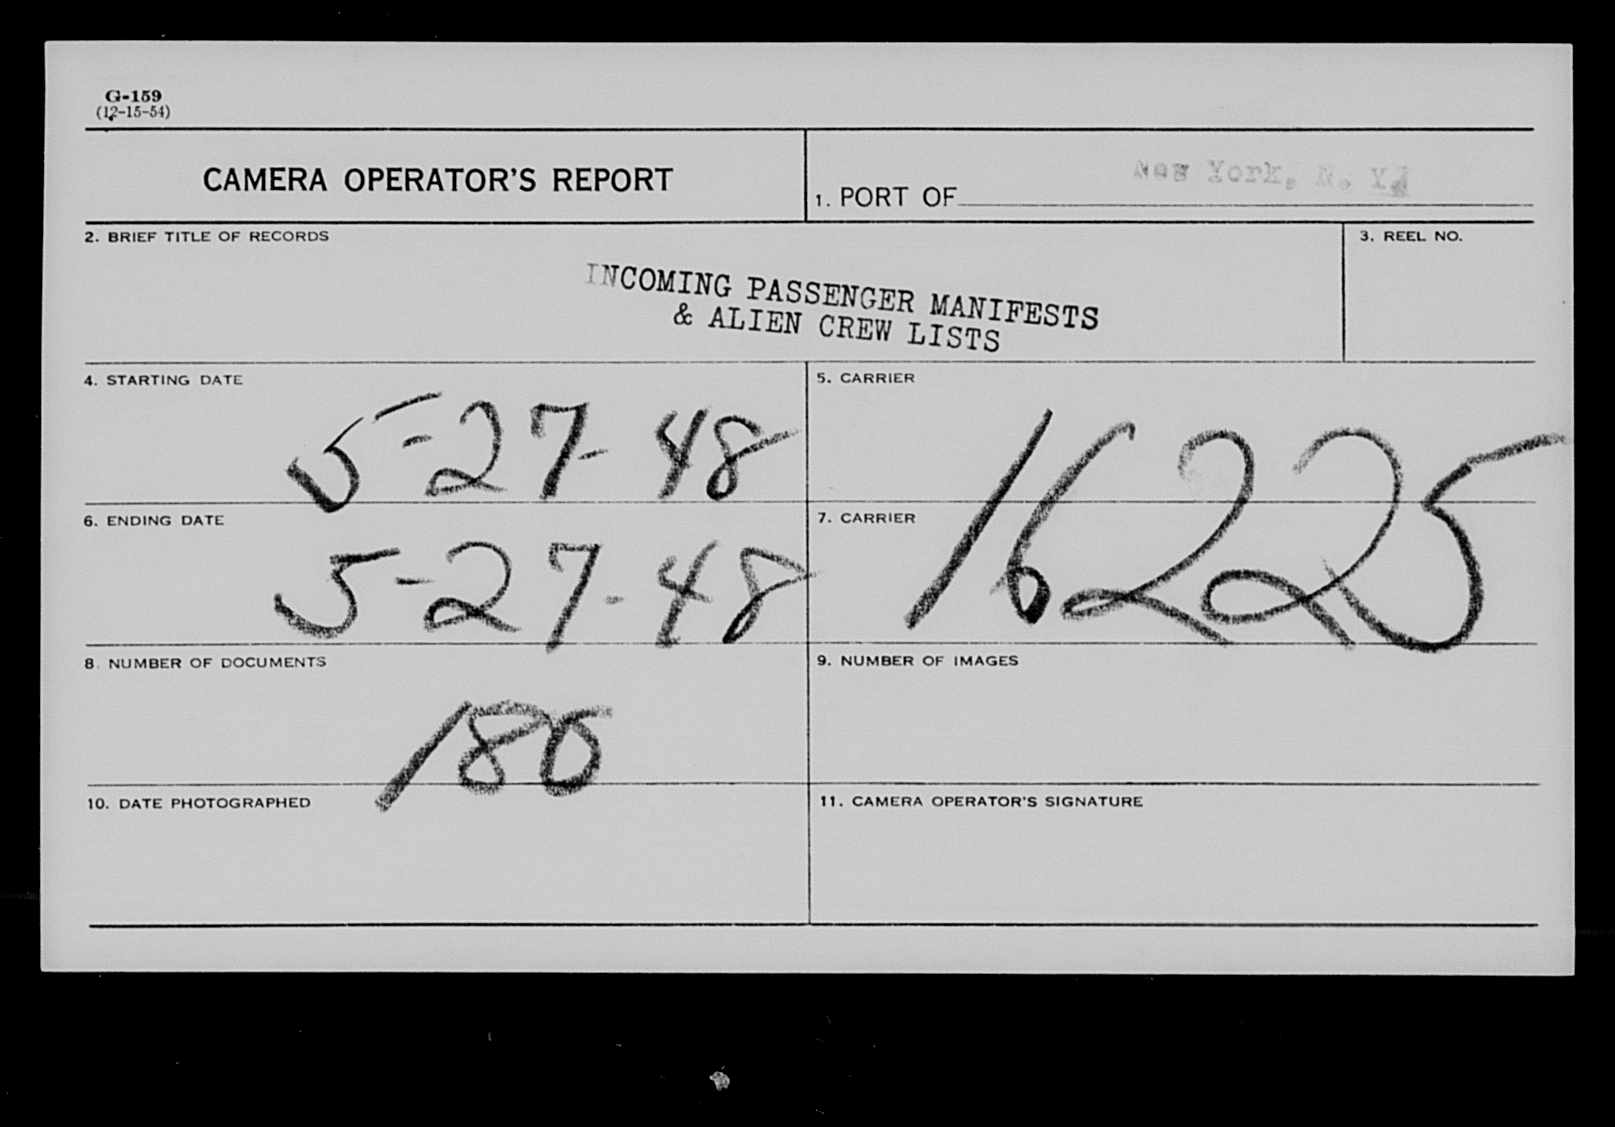 G-159
(12-15-54)
CAMERA OPERATOR'S REPORT
1. PORT OF New York, N. Y.
2. BRIEF TITLE OF RECORDS
3. REEL NO.
INCOMING PASSENGER MANIFESTS
& ALIEN CREW LISTS
4. STARTING DATE
5-27-48
5. CARRIER
16225
6. ENDING DATE
5-27-48
7. CARRIER
8. NUMBER OF DOCUMENTS
180
9. NUMBER OF IMAGES
10. DATE PHOTOGRAPHED
11. CAMERA OPERATOR'S SIGNATURE